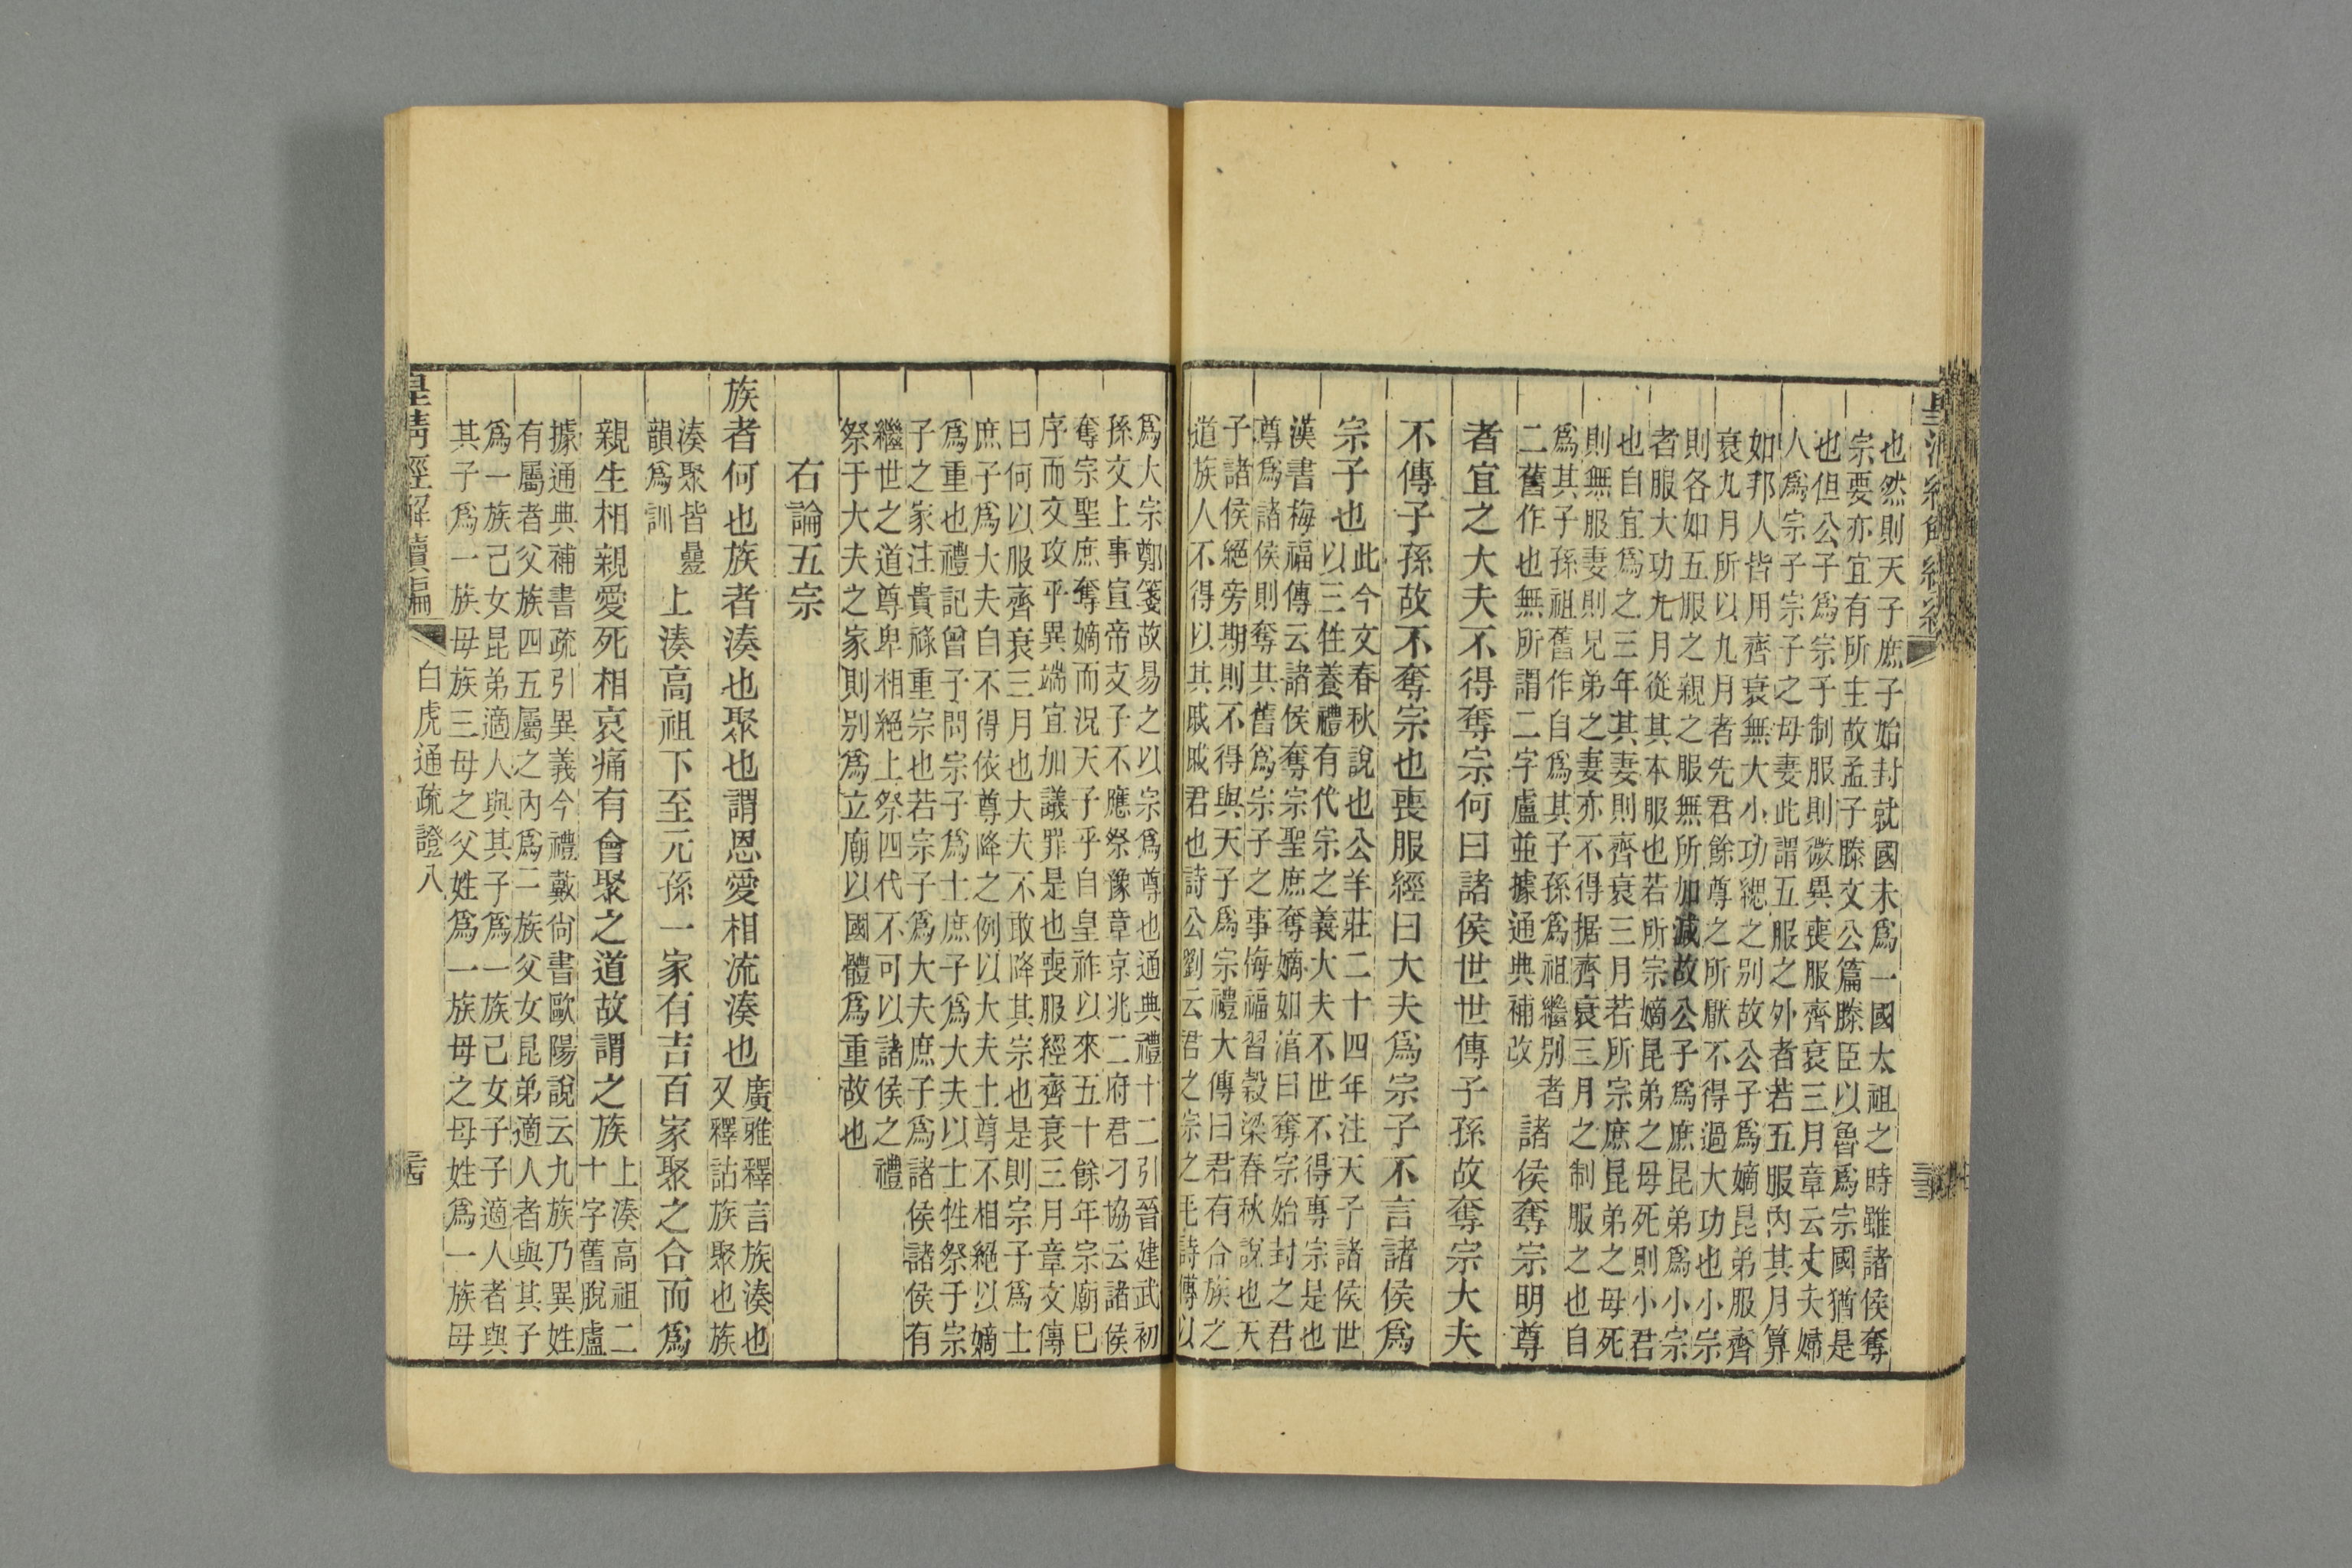 也然則天子庶子始封就國未爲一國太祖之時雖諸侯奪
宗要亦宜有所主故孟子滕文公篇滕臣以魯爲宗國猶是
也但公子爲宗子制服則微異喪服齊衰三月章云丈夫婦
人爲宗子宗子之母妻此謂五服之外者若五服內其月算
如邦人皆用齊衰無大小功緦之别故公子爲嫡昆弟服齊
衰九月所以九月者先君餘尊之所厭不得過大功也小宗
則各如五服之親之服無所加減故公子爲庶昆弟爲小宗
者服大功九月從其本服也若所宗嫡昆弟之母死則小君
也自宜爲之三年其妻則齊衰三月若所宗庶昆弟之母死
則無服妻則兄弟之妻亦不得据齊衰三月之制服之也自
爲其子孫祖舊作自爲其子孫爲祖繼别者
二舊作也無所謂二字盧並據通典補改
諸侯奪宗明尊
者宜之大夫不得奪宗何曰諸侯世世傳子孫故奪宗大夫
不傳子孫故不奪宗也喪服經曰大夫爲宗子不言諸侯爲
宗子也
此今文春秋說也公羊莊二十四年注天子諸侯世
以三牲養禮有代宗之義大夫不世不得專宗是也
漢書梅福傳云諸侯奪宗聖庶奪嫡如淯曰奪宗始封之君
尊爲諸侯則奪其舊爲宗子之事侮福習穀梁春秋說也天
子諸侯絕旁期則不得與天子爲宗禮大傳曰君有合族之
道族人不得以其戚戚君也詩公劉云君之宗之毛詩傳以
爲大宗鄭箋故易之以宗爲尊也通典禮十二引晉建武初
孫文上事宣帝支子不應祭豫章京兆二府君刁協云諸侯
奪宗聖庶奪嫡而況天子乎自皇祚以來五十餘年宗廟已
序而文攻乎異端宜加議罪是也喪服經齊衰三月章文傳
曰何以服齊衰三月也大夫不敢降其宗也是則宗子爲士
庶子爲大夫自不得依尊降之例以大夫士尊不相絕以嫡
爲重也禮記曾子問宗子爲士庶子爲大夫以士牲祭于宗
子之家注貴祿重宗也若宗子爲大夫庶子爲諸侯諸侯有
繼世之道尊卑相絕上祭四代不可以諸侯之禮
祭于大夫之家則别爲立廟以國體爲重故也
右論五宗
族者何也族者湊也聚也謂恩愛相流湊也
廣雅釋言族湊也
又釋詁族聚也族
湊聚皆疊
韻爲訓
上湊高祖下至元孫一家有吉百家聚之合而爲
親生相親愛死相哀痛有會聚之道故謂之族
上湊高祖二
十字舊脫盧
據通典補書疏引異義今禮戴尙書歐陽說云九族乃異姓
有屬者父族四五屬之內爲二族父女昆弟適人者與其子
爲一族己女昆弟適人與其子爲一族己女子子適人者與
其子爲一族母族三母之父姓爲一族母之母姓爲一族母
皇淸經解續編
白虎通疏證八